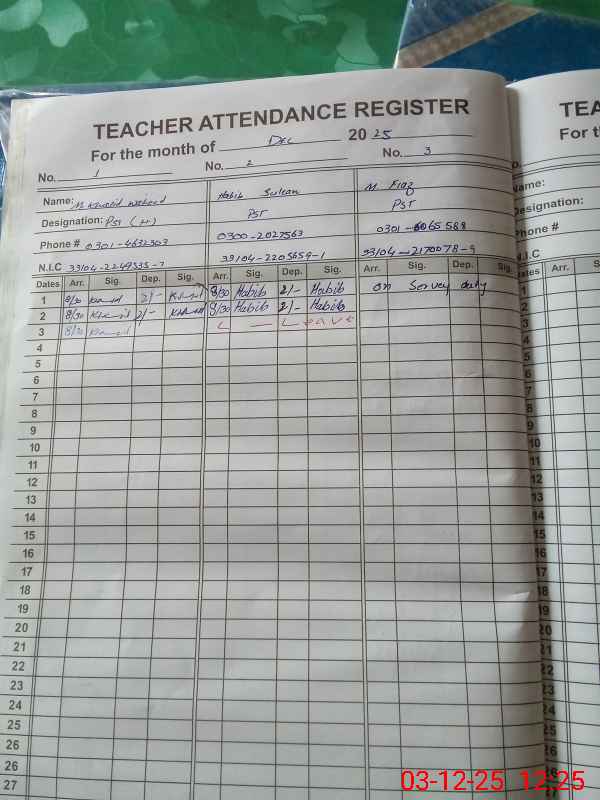 TEACHER ATTENDANCE REGISTER
For the month of Dec 2025
No. 1 No. 2 No. 3
Name: M Khalid Habib Sultan M. Fiaz
Designation: PST (H) PST PST
Phone # 0301-4632303 0300-2027563 0301-6065588
N.I.C 33104-2249535-7 33104-2205659-1 33104-2170078-9
Dates Arr. Sig. Dep. Sig. Arr. Sig. Dep. Sig. Arr. Sig. Dep. Sig.
1 8/30 2/- 8/30 Habib 2/- Habib on Survey duty
2 8/30 2/- 8/30 Habib 2/- Habib
3 8/30 L — Leave
4
5
6
7
8
9
10
11
12
13
14
15
16
17
18
19
20
21
22
23
24
25
26
26
27
TEA
For t
No.
Name:
Designation:
Phone #
N.I.C
Dates Arr. Sig.
1
2
3
4
5
6
7
8
9
10
11
12
13
14
15
16
17
18
19
20
21
22
23
24
25
26
26
03-12-25 12:25